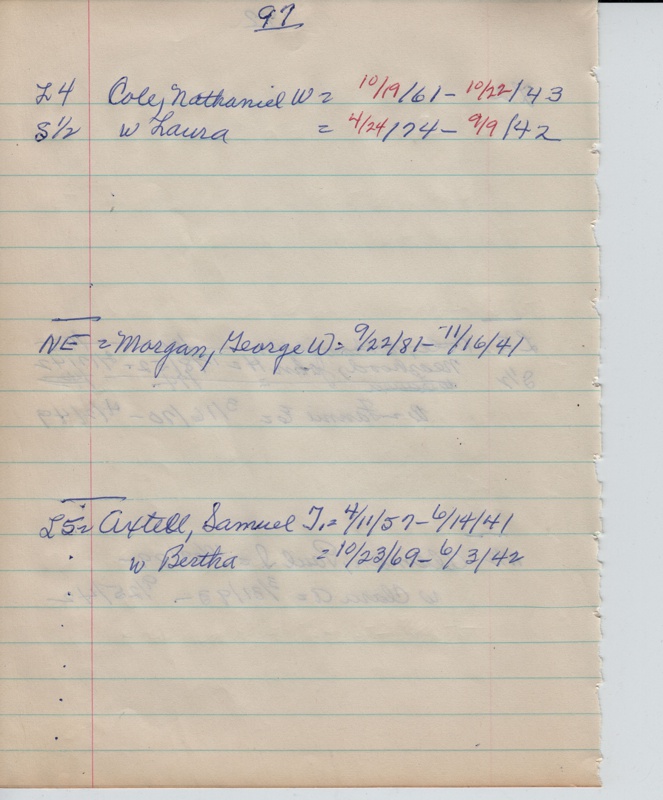 97
L4 Cole, Nathaniel W = 10/19/61 - 10/22/43
S 1/2 w Laura = 4/24/74 - 9/9/42
NE = Morgan, George W = 9/22/81 - 11/16/41
L5 = Axtell, Samuel T. = 4/11/57 - 6/14/41
w Bertha = 10/23/69 - 6/3/42